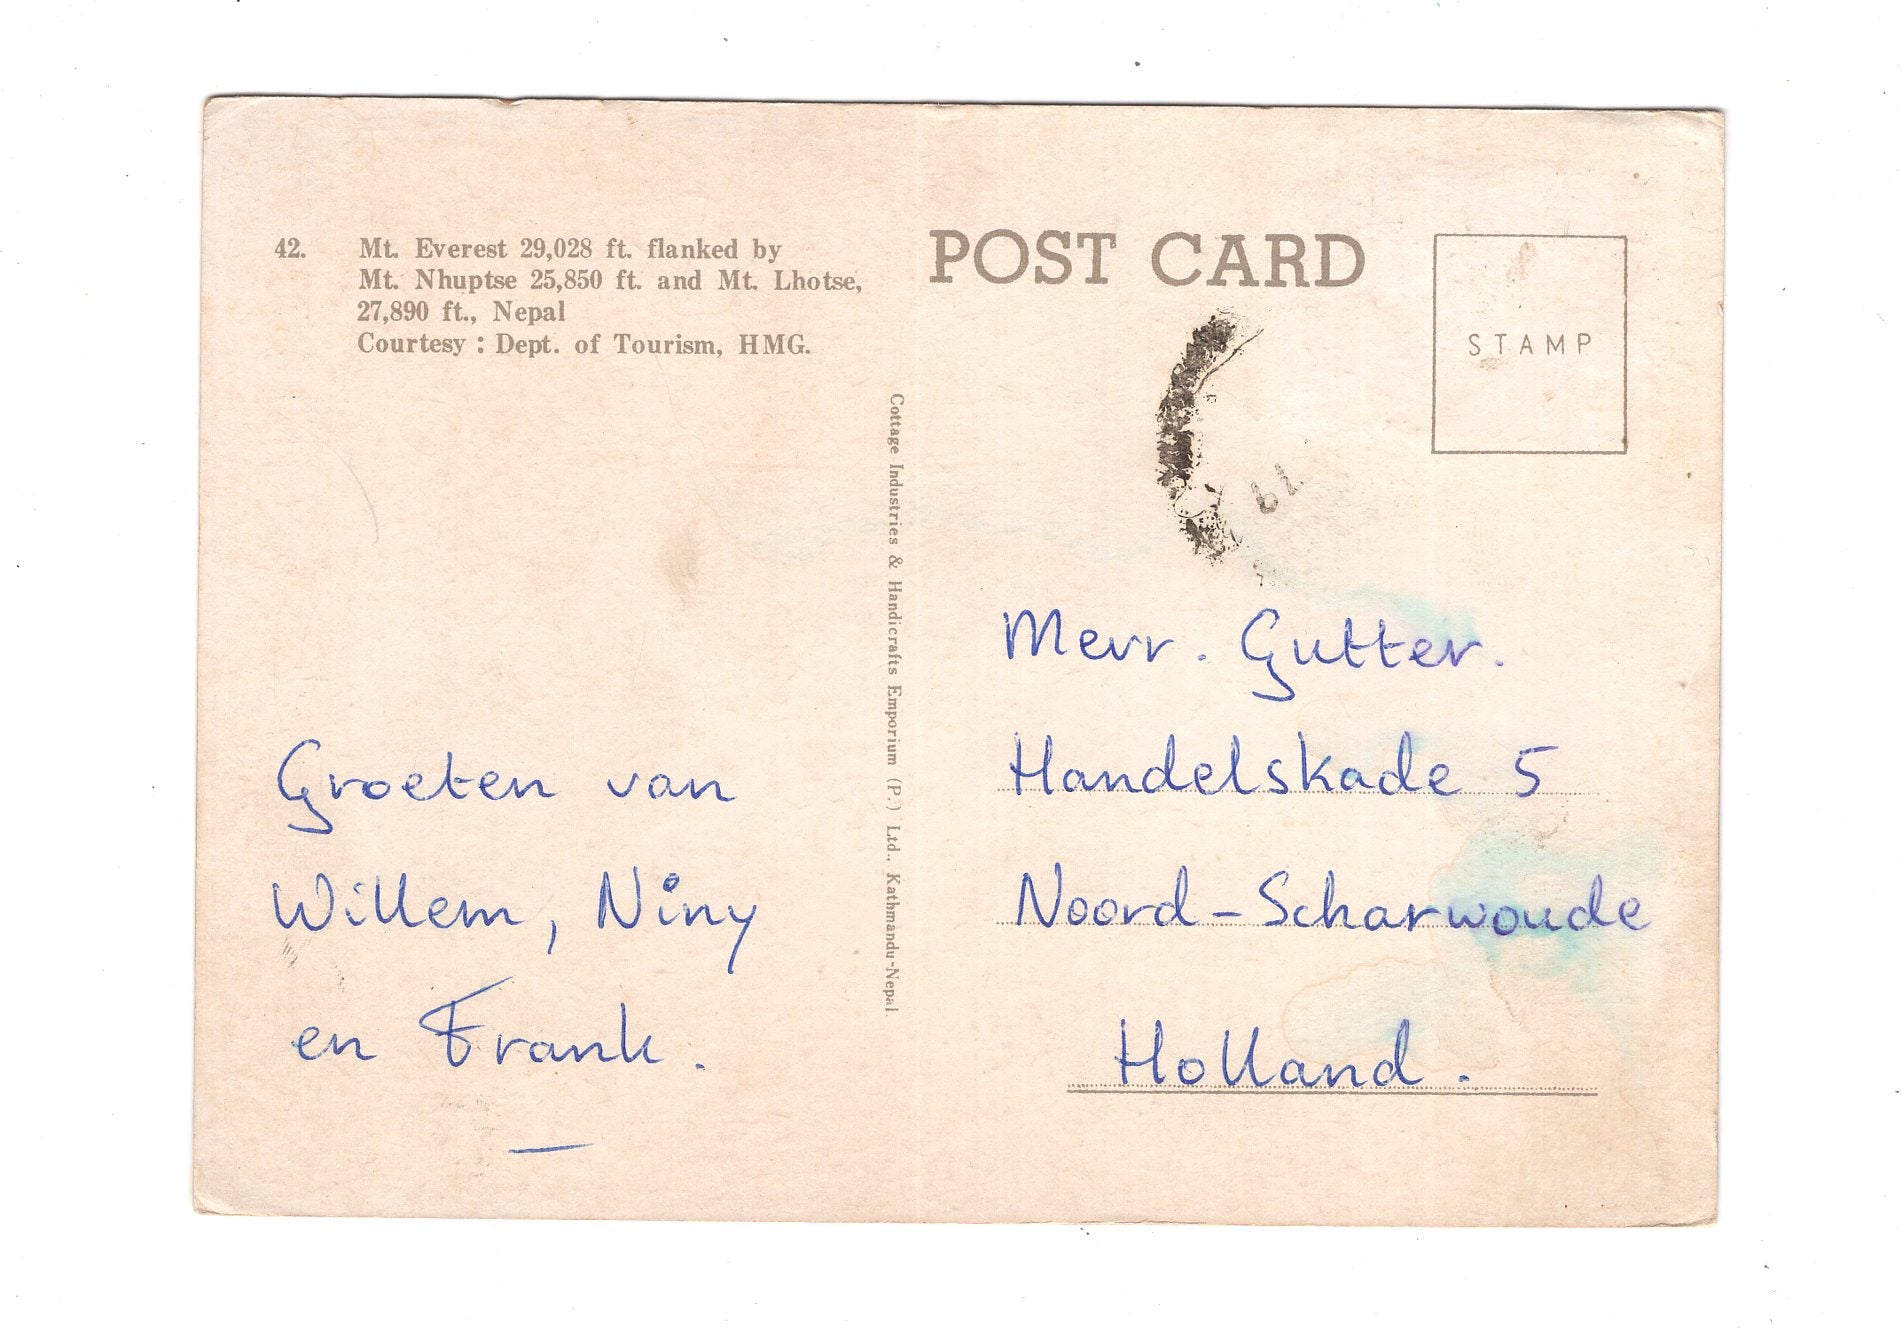 42. Mt. Everest 29,028 ft. flanked by
Mt. Nhuptse 25,850 ft. and Mt. Lhotse,
27,890 ft., Nepal
Courtesy : Dept. of Tourism, HMG.
Groeten van
Willem, Niny
en Frank.
Cottage Industries & Handicrafts Emporium (P.) Ltd., Kathmandu-Nepal
POST CARD
STAMP
Mevr. Gutter.
Handelskade 5
Noord-Scharwoude
Holland.